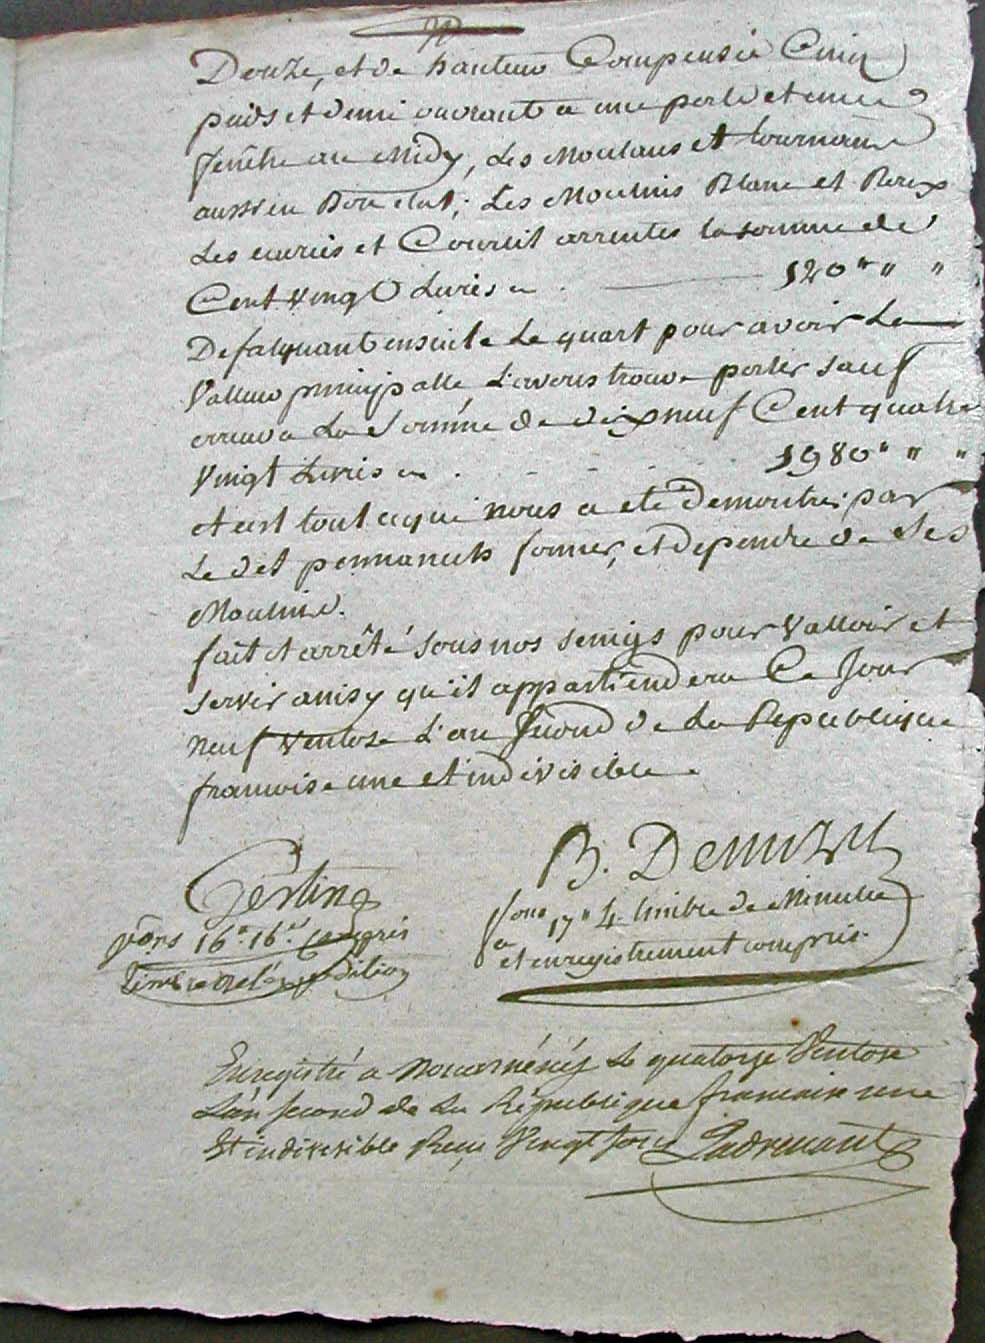 Douze, et de hauteur Compensée Cinq
pieds et demi ouvrant a une porte et une
fenêtre au Midy, Les Moulans et tournans
aussi en Bon etat; Les Moulins Blanc et Roux
Les ecuries et Courtil arrentes la somme de
Cent vingt Livres 120 " " "
Defalquant ensuite Le quart pour avoir La
Valleur principalle L'avons trouvé porter sauf
erreur a La Somme de dix neuf Cent quatre
Vingt Livres 1980 " " "
et est tout ce qui nous a eté Demontré par
Le dit pour former, et dependre de Ses
Moulins.
fait et arrêté sous nos seings pour Valloir et
servir ainsy qu'il appartiendera Ce Jour
neuf Ventose L'an Second de La Republique
francoise une et indivisible.
Gestin
B. Denuzel
16# 16s compris
Timbre et expedition
17# 4 timbre de Minutte
et enregistrement compris.
Enregistré a le quatorze Ventose
L'an second de La République francaise une
Et indivisible Reçu Vingt sous Ladrenant